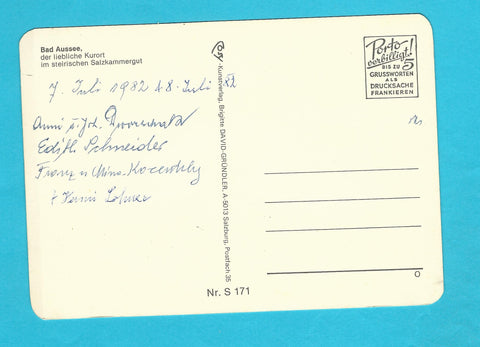 Bad Aussee,
der liebliche Kurort
im steirischen Salzkammergut
7. Juli 1982 + 8. Juli 82
Anni u. Joh.
Edith Schneider
Franz u Mina
+ Hanni
Kunstverlag, Brigitte DAVID-GRÜNDLER, A-5013 Salzburg, Postfach 35
Porto
verbilligt!
BIS ZU 5
GRUSSWORTEN
ALS
DRUCKSACHE
FRANKIEREN
Nr. S 171